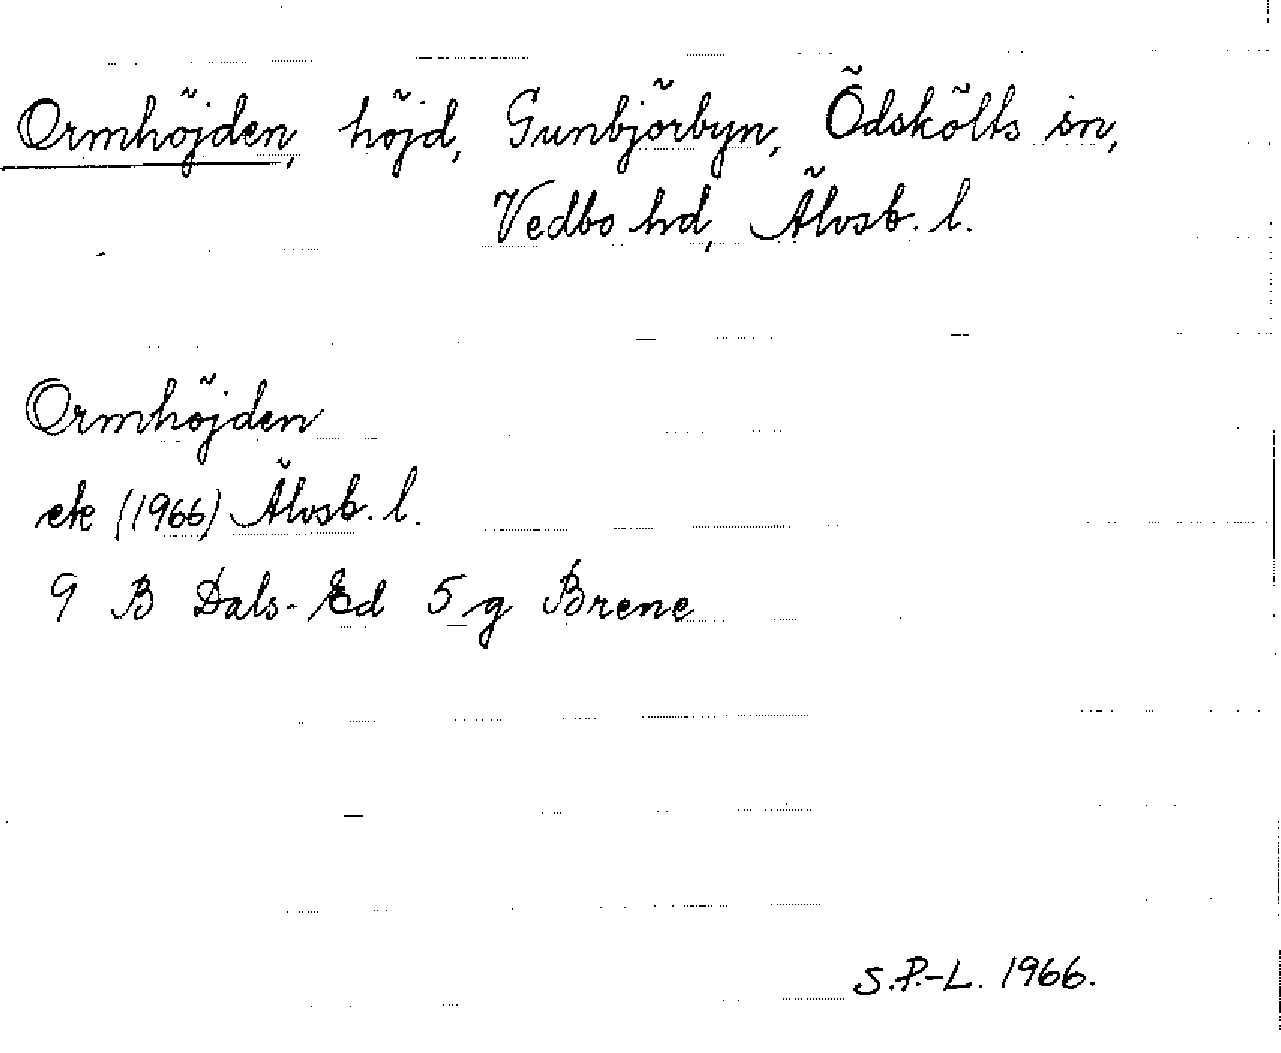 Ormhöjden, höjd, Gunbjörbyn, Ödskölts sn,
Vedbo hd, Älvsb. l.
Ormhöjden
ek (1966) Älvsb. l.
9 B Dals-Ed 5 g Brene
S.P.-L. 1966.